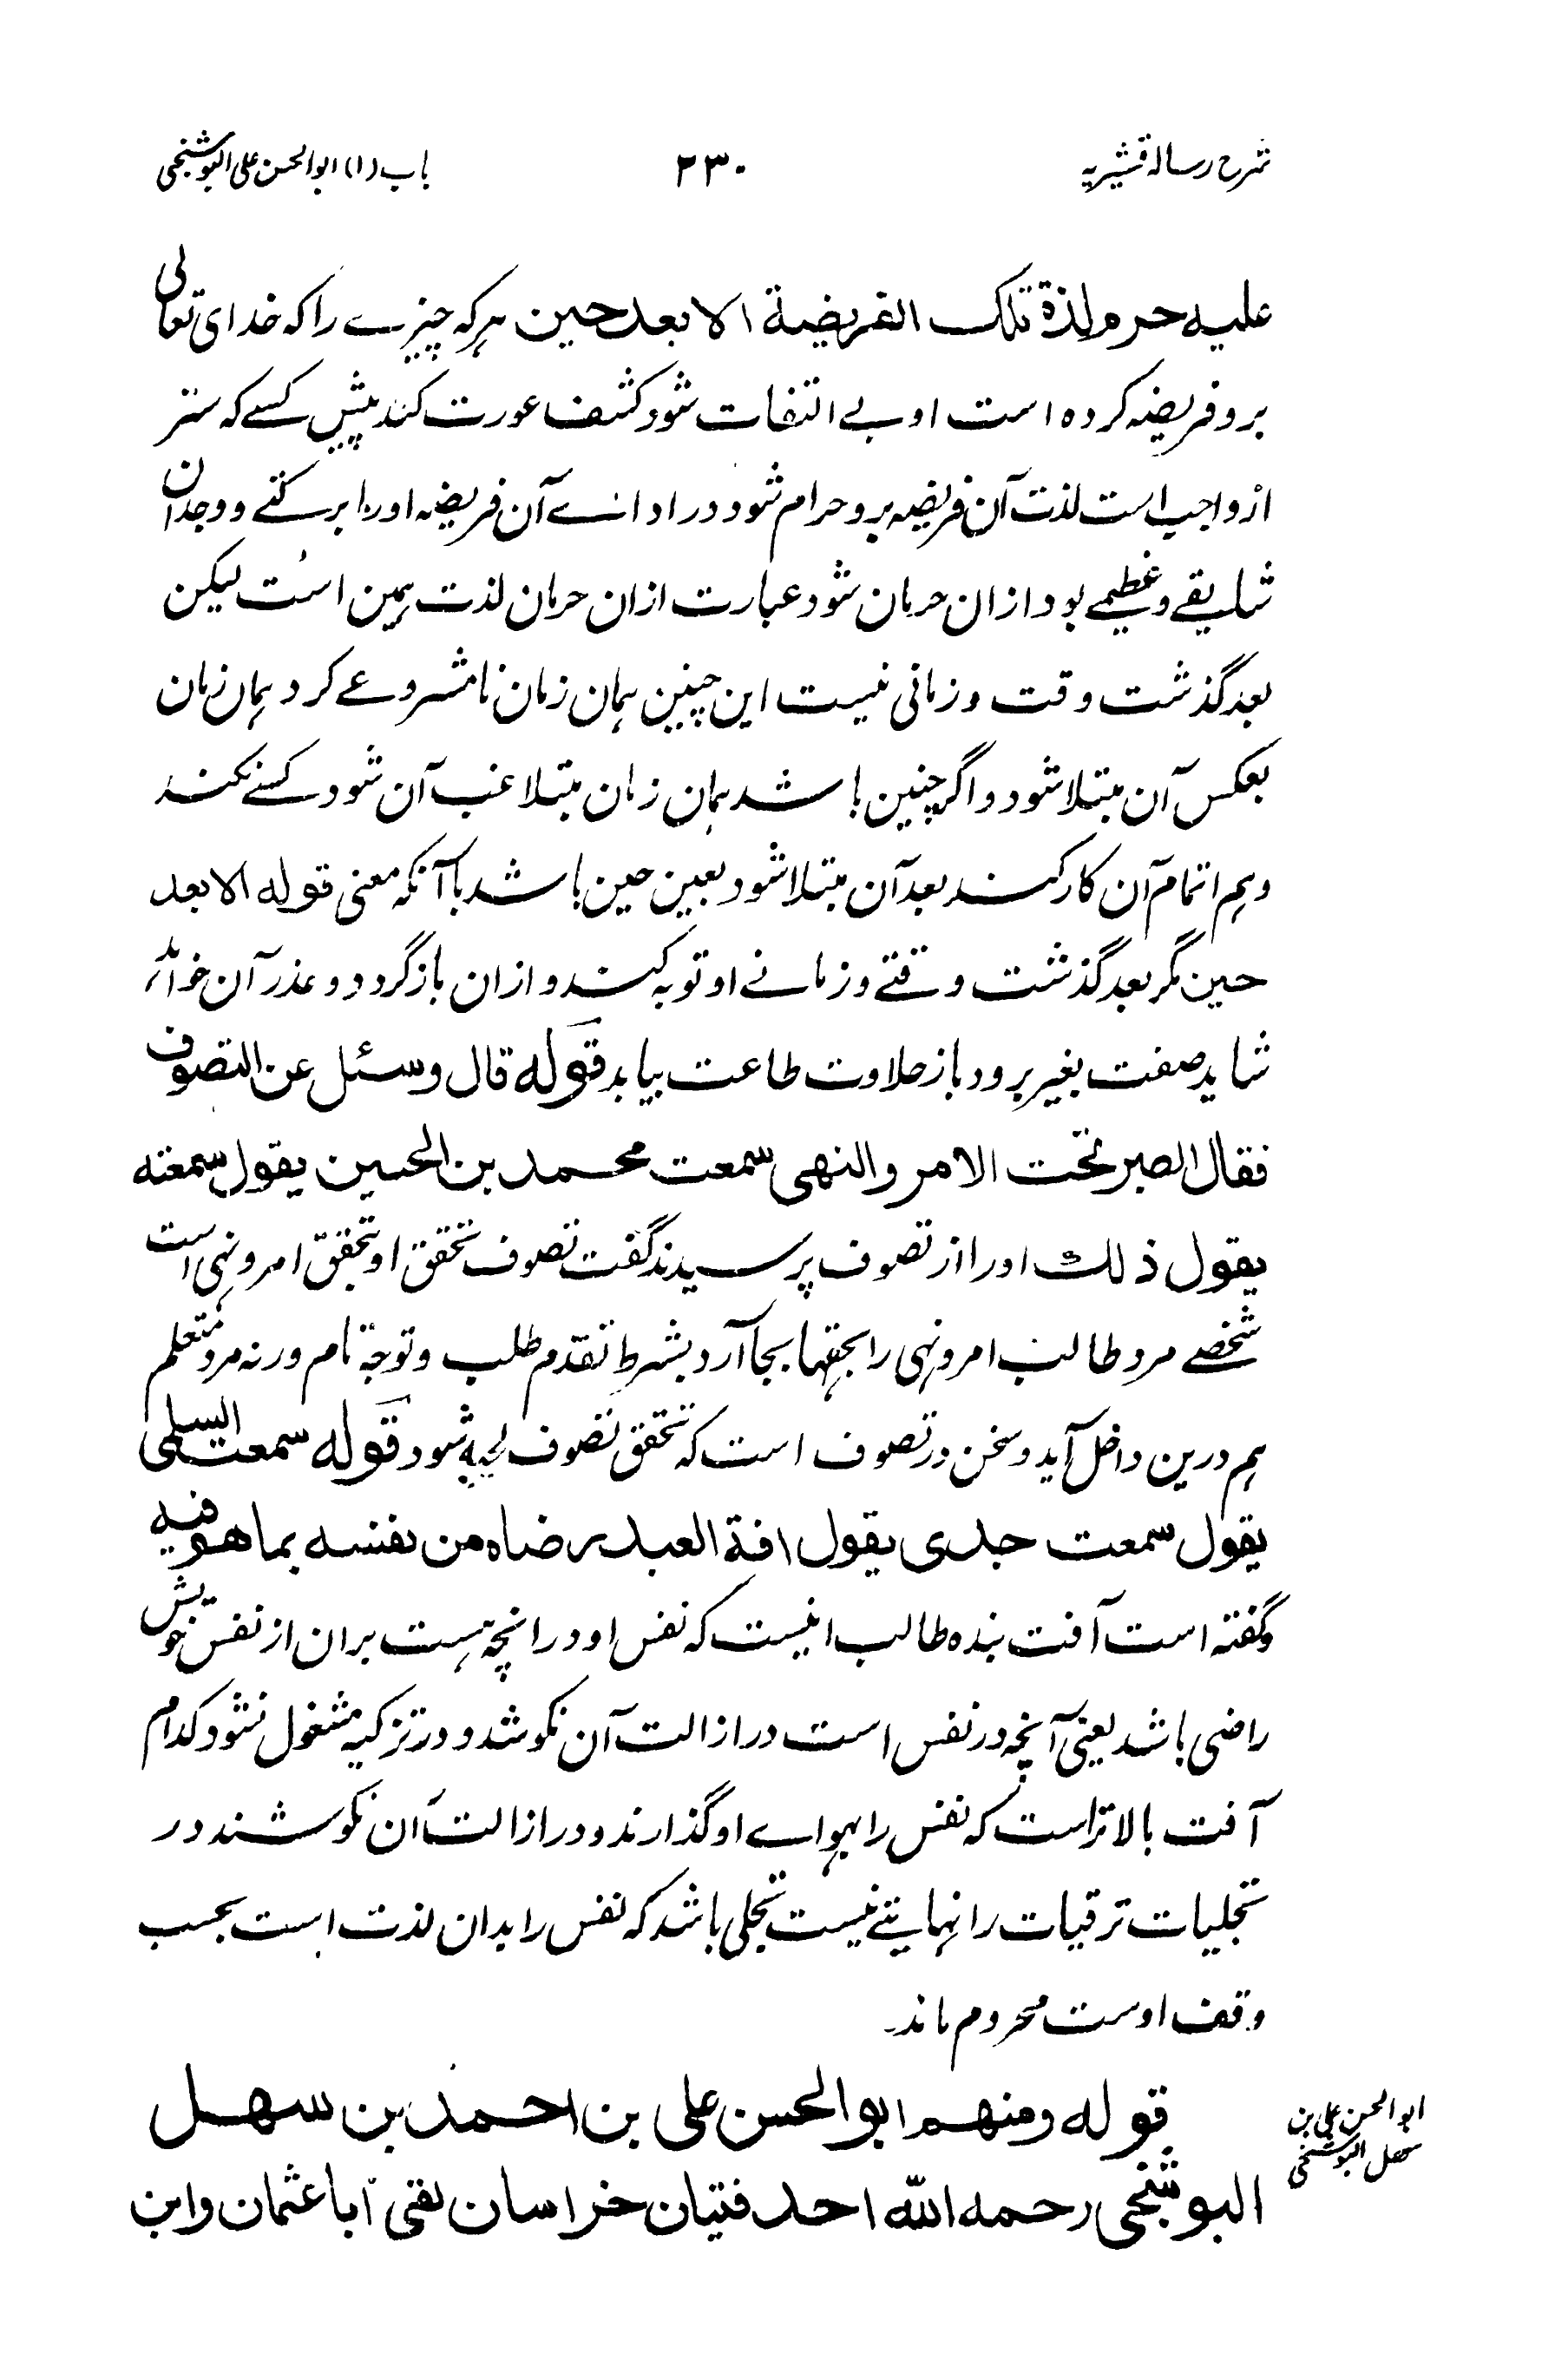 شرح رسالہ قشیریہ
۲۳۰
باب (۱) ابوالحسن علی البوشنجی
علیه حرم لذة تلک الفریضة الا بعد حین ہرکہ چیزے را کہ خدای تعالی
برو فریضہ کردہ است او بے التفات شود کشف عورت کند پیش کسے کہ ستر
ازو واجب است لذت آن فریضہ برو حرام شود در ادائے آن فریضہ اورا برکتے و وجدان
و عظیمے بود ازان حرمان شود عبارت ازان حرمان لذت ہمین است لیکن
بعد گذشت وقت و زمانی نیست این چنین ہمان زمان نامشروعے کرد ہمان زمان
بعکس آن مبتلا شود و اگر چنین باشد ہمان زمان مبتلا آن شود کسے نکند
وہم اتمام آن کار کند بعد آن مبتلا شود بعین حین باشد با آنکہ معنی قولہ الا بعد
حین مگر بعد گذشت وقتے و زمانے او توبہ کند و ازان باز گردد و عذر آن خواہد
شاید صفت بغیر برود باز حلاوت طاعت بیابد قوله قال وسئل عن التصوف
فقال الصبر تحت الامر والنهی سمعت محمد بن الحسین یقول سمعته
یقول ذلك اورا از تصوف پرسیدند گفت تصوف تحقق او بتحقق امر و نہی است
شخصے مرد طالب امر و نہی را بحقہا بجا آرد بشرط تقدم طلب و توجہ تام ورنہ مرد متعلم
ہم درین داخل آید و سخن در تصوف است کہ تحقق تصوف بچہ شود قوله سمعت السلمی
یقول سمعت جدی یقول افة العبد رضاه من نفسه بما هو فیه
و گفتہ است آفت بندہ طالب اینست کہ نفس او در انچہ ہست بران از نفس خویش
راضی باشد یعنی آنچہ در نفس است در ازالت آن نکوشد و در تزکیہ مشغول نشود کدام
آفت بالاتر است کہ نفس را بہواے او گذارند و در ازالت آن نکوشند در
تجلیات ترقیات را نہایتے نیست تجلی باشد کہ نفس را بدان لذت است بحسب
وقف اوست محروم ماند۔
قوله ومنهم ابوالحسن علی بن احمد بن سهل
البوشنجی رحمه الله احد فتیان خراسان لقی ابا عثمان وابن
ابوالحسن علی بن
سہل البوشنجی